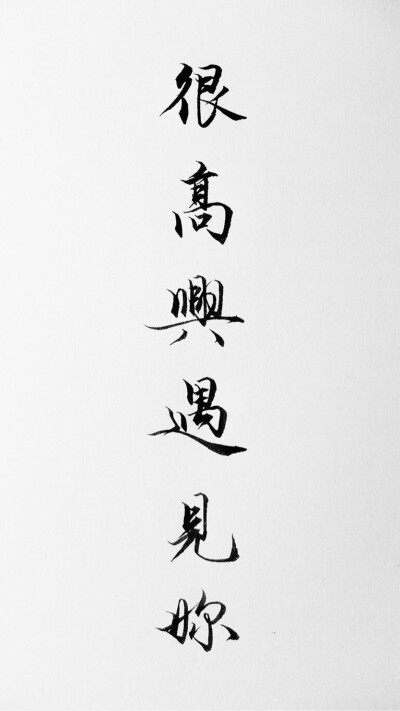 很髙興遇見妳